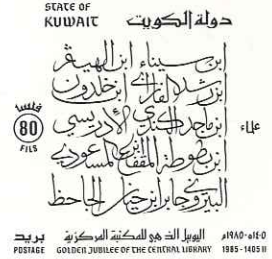 STATE OF
KUWAIT
دولة الكويت
ابن سيناء ابن الهيثم
ابن رشد الفارابي ابن خلدون
ابن ماجد الكندي الإدريسي
ابن بطوطة ابن المقفع المسعودي
البيروني جابر ابن حيان الجاحظ
علماء
فلسا
80
FILS
بريد
POSTAGE
اليوبيل الذهبي للمكتبة المركزية
GOLDEN JUBILEE OF THE CENTRAL LIBRARY
١٤٠٥-١٩٨٥م
1985-1405 H